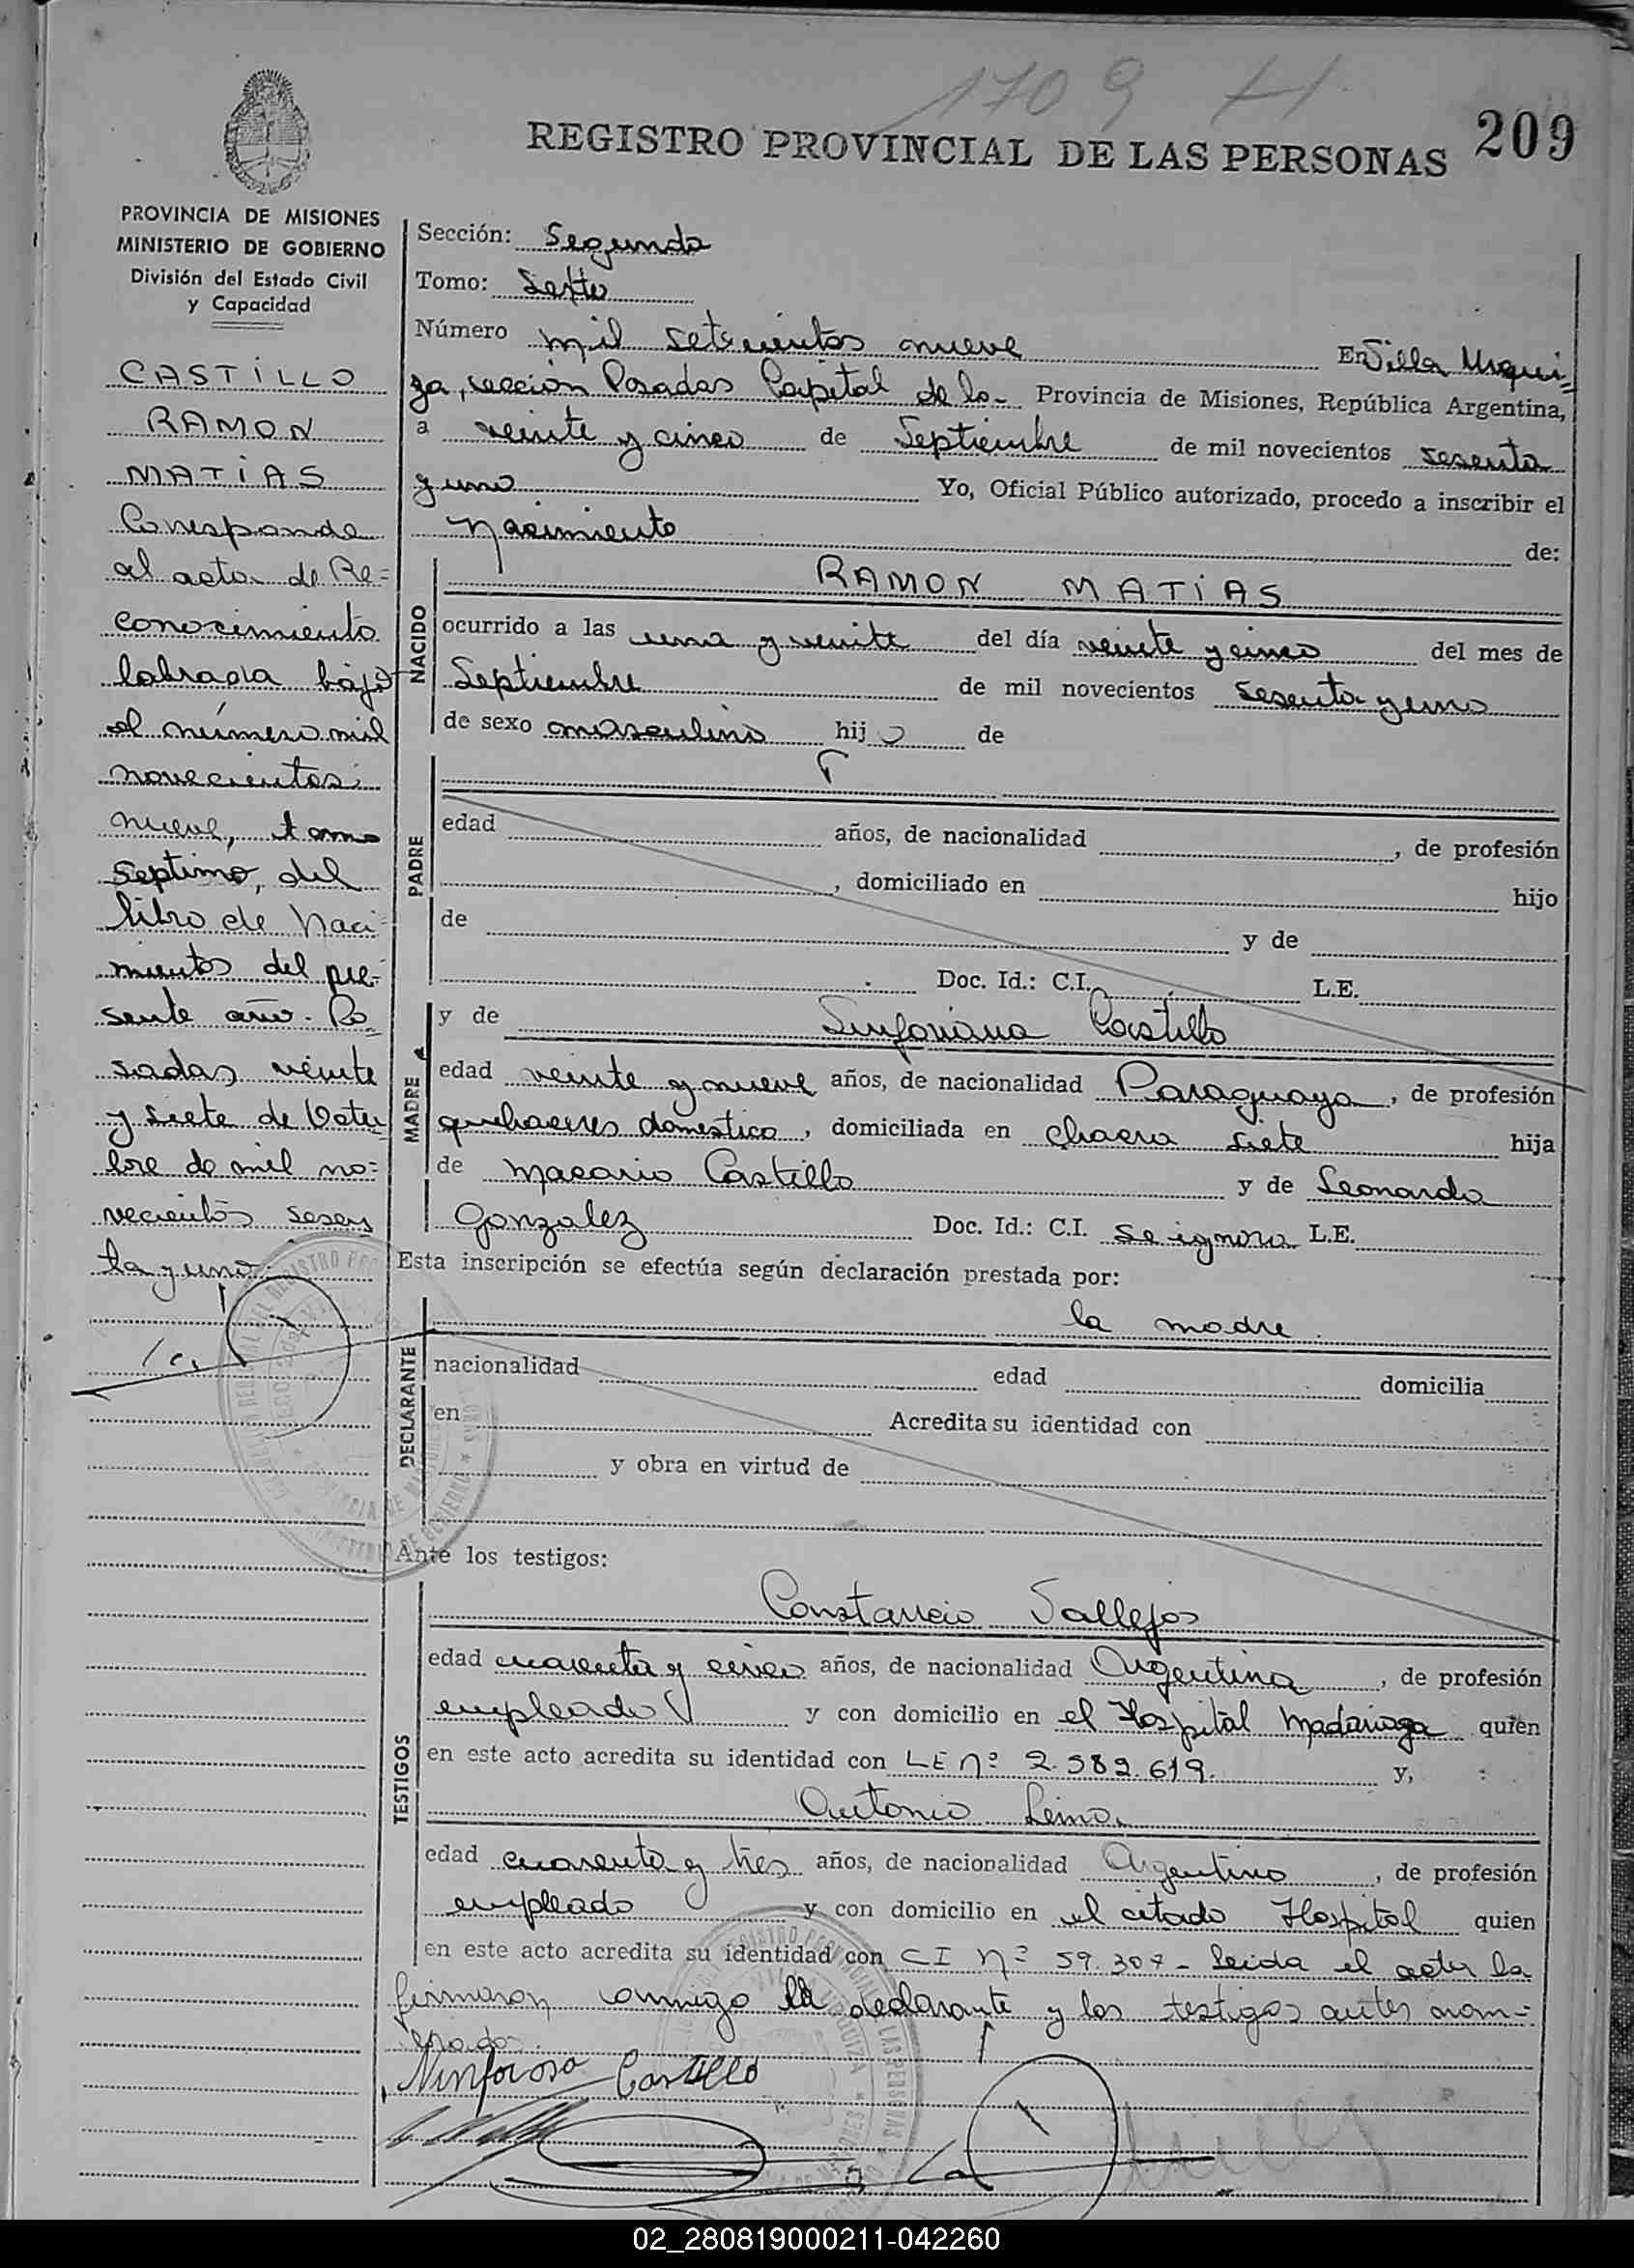 1709 H
209
REGISTRO PROVINCIAL DE LAS PERSONAS
PROVINCIA DE MISIONES
MINISTERIO DE GOBIERNO
División del Estado Civil
y Capacidad
CASTILLO
RAMON
MATIAS
Corresponde
al acta de Re=
conocimiento
labrada bajo
el número mil
novecientos
nueve, tomo
septimo, del
libro de Naci-
mientos del pre-
sente año. Po=
sadas veinte
y siete de Octu
bre de mil no=
vecientos sesen
ta y uno.
Sección: Segunda
Tomo: Sexto
Número mil setecientos nueve En Villa Urqui-
za, sección Posadas Capital de la- Provincia de Misiones, República Argentina,
a veinte y cinco de Septiembre de mil novecientos sesenta
y uno Yo, Oficial Público autorizado, procedo a inscribir el
Nacimiento de:
NACIDO
RAMON MATIAS
ocurrido a las una y veinte del día veinte y cinco del mes de
Septiembre de mil novecientos sesenta y uno
de sexo masculino hijo de
PADRE
edad años, de nacionalidad , de profesión
, domiciliado en hijo
de y de
Doc. Id.: C.I. L.E.
MADRE
y de Sinforiana Castillo
edad veinte y nueve años, de nacionalidad Paraguaya, de profesión
quehaceres domestico, domiciliada en chacra siete hija
de Macario Castillo y de Leonarda
Gonzalez Doc. Id.: C.I. Se ignora L.E.
Esta inscripción se efectúa según declaración prestada por:
DECLARANTE
la madre.
nacionalidad edad domicilia
en Acredita su identidad con
y obra en virtud de
Ante los testigos:
TESTIGOS
Constancio Vallejos
edad cuarenta y cinco años, de nacionalidad Argentina, de profesión
empleado y con domicilio en el Hospital Madariaga quien
en este acto acredita su identidad con LE nº 2.582.619. y,
Antonio Leima
edad cuarenta y tres años, de nacionalidad Argentino, de profesión
empleado y con domicilio en el citado Hospital quien
en este acto acredita su identidad con CI Nº 59.307 - Leida el acta la
firmaron conmigo la declarante y los testigos antes nom=
brados.
Ninforosa Castillo
02_280819000211-042260